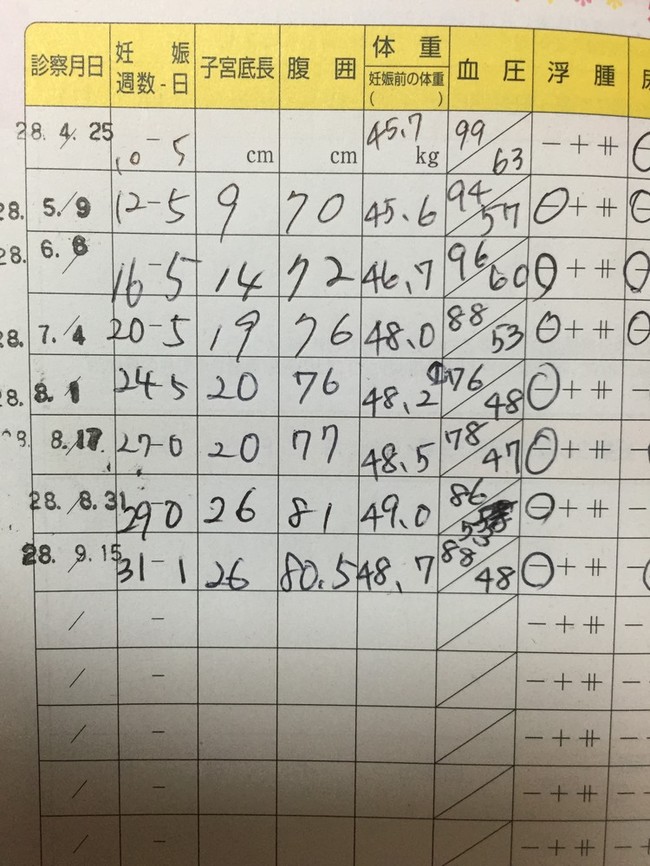 診察月日 妊娠週数-日 子宮底長 腹囲 体重 妊娠前の体重( ) 血圧 浮腫
28. 4. 25 10-5 cm cm 45.7 kg 99/63 - + ⧺
28. 5./9 12-5 9 70 45.6 94/57 - + ⧺
28. 6./8 16-5 14 72 46.7 96/60 - + ⧺
28. 7./4 20-5 19 76 48.0 88/53 - + ⧺
28. 8./1 24-5 20 76 48.2 76/48 - + ⧺
8./17. 27-0 20 77 48.5 78/47 - + ⧺
28. 8. 31 29-0 26 81 49.0 86/ - + ⧺
28. 9. 15 31-1 26 80.5 48.7 88/48 - + ⧺
/ - / - + ⧺
/ - / - + ⧺
/ - / - + ⧺
/ - / - + ⧺
/ - / - + ⧺